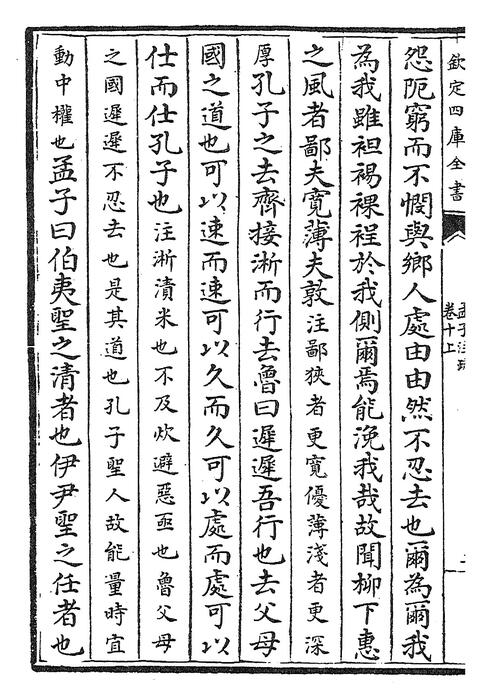 欽定四庫全書
孟子注疏
卷十上
怨阨窮而不憫與鄉人處由由然不忍去也爾為爾我
為我雖袒裼裸裎於我側爾焉能浼我哉故聞柳下惠
之風者鄙夫寛薄夫敦注鄙狹者更寛優薄淺者更深
厚孔子之去齊接淅而行去魯曰遲遲吾行也去父母
國之道也可以速而速可以久而久可以處而處可以
仕而仕孔子也注淅漬米也不及炊避惡亟也魯父母
之國遲遲不忍去也是其道也孔子聖人故能量時宜
動中權也孟子曰伯夷聖之清者也伊尹聖之任者也